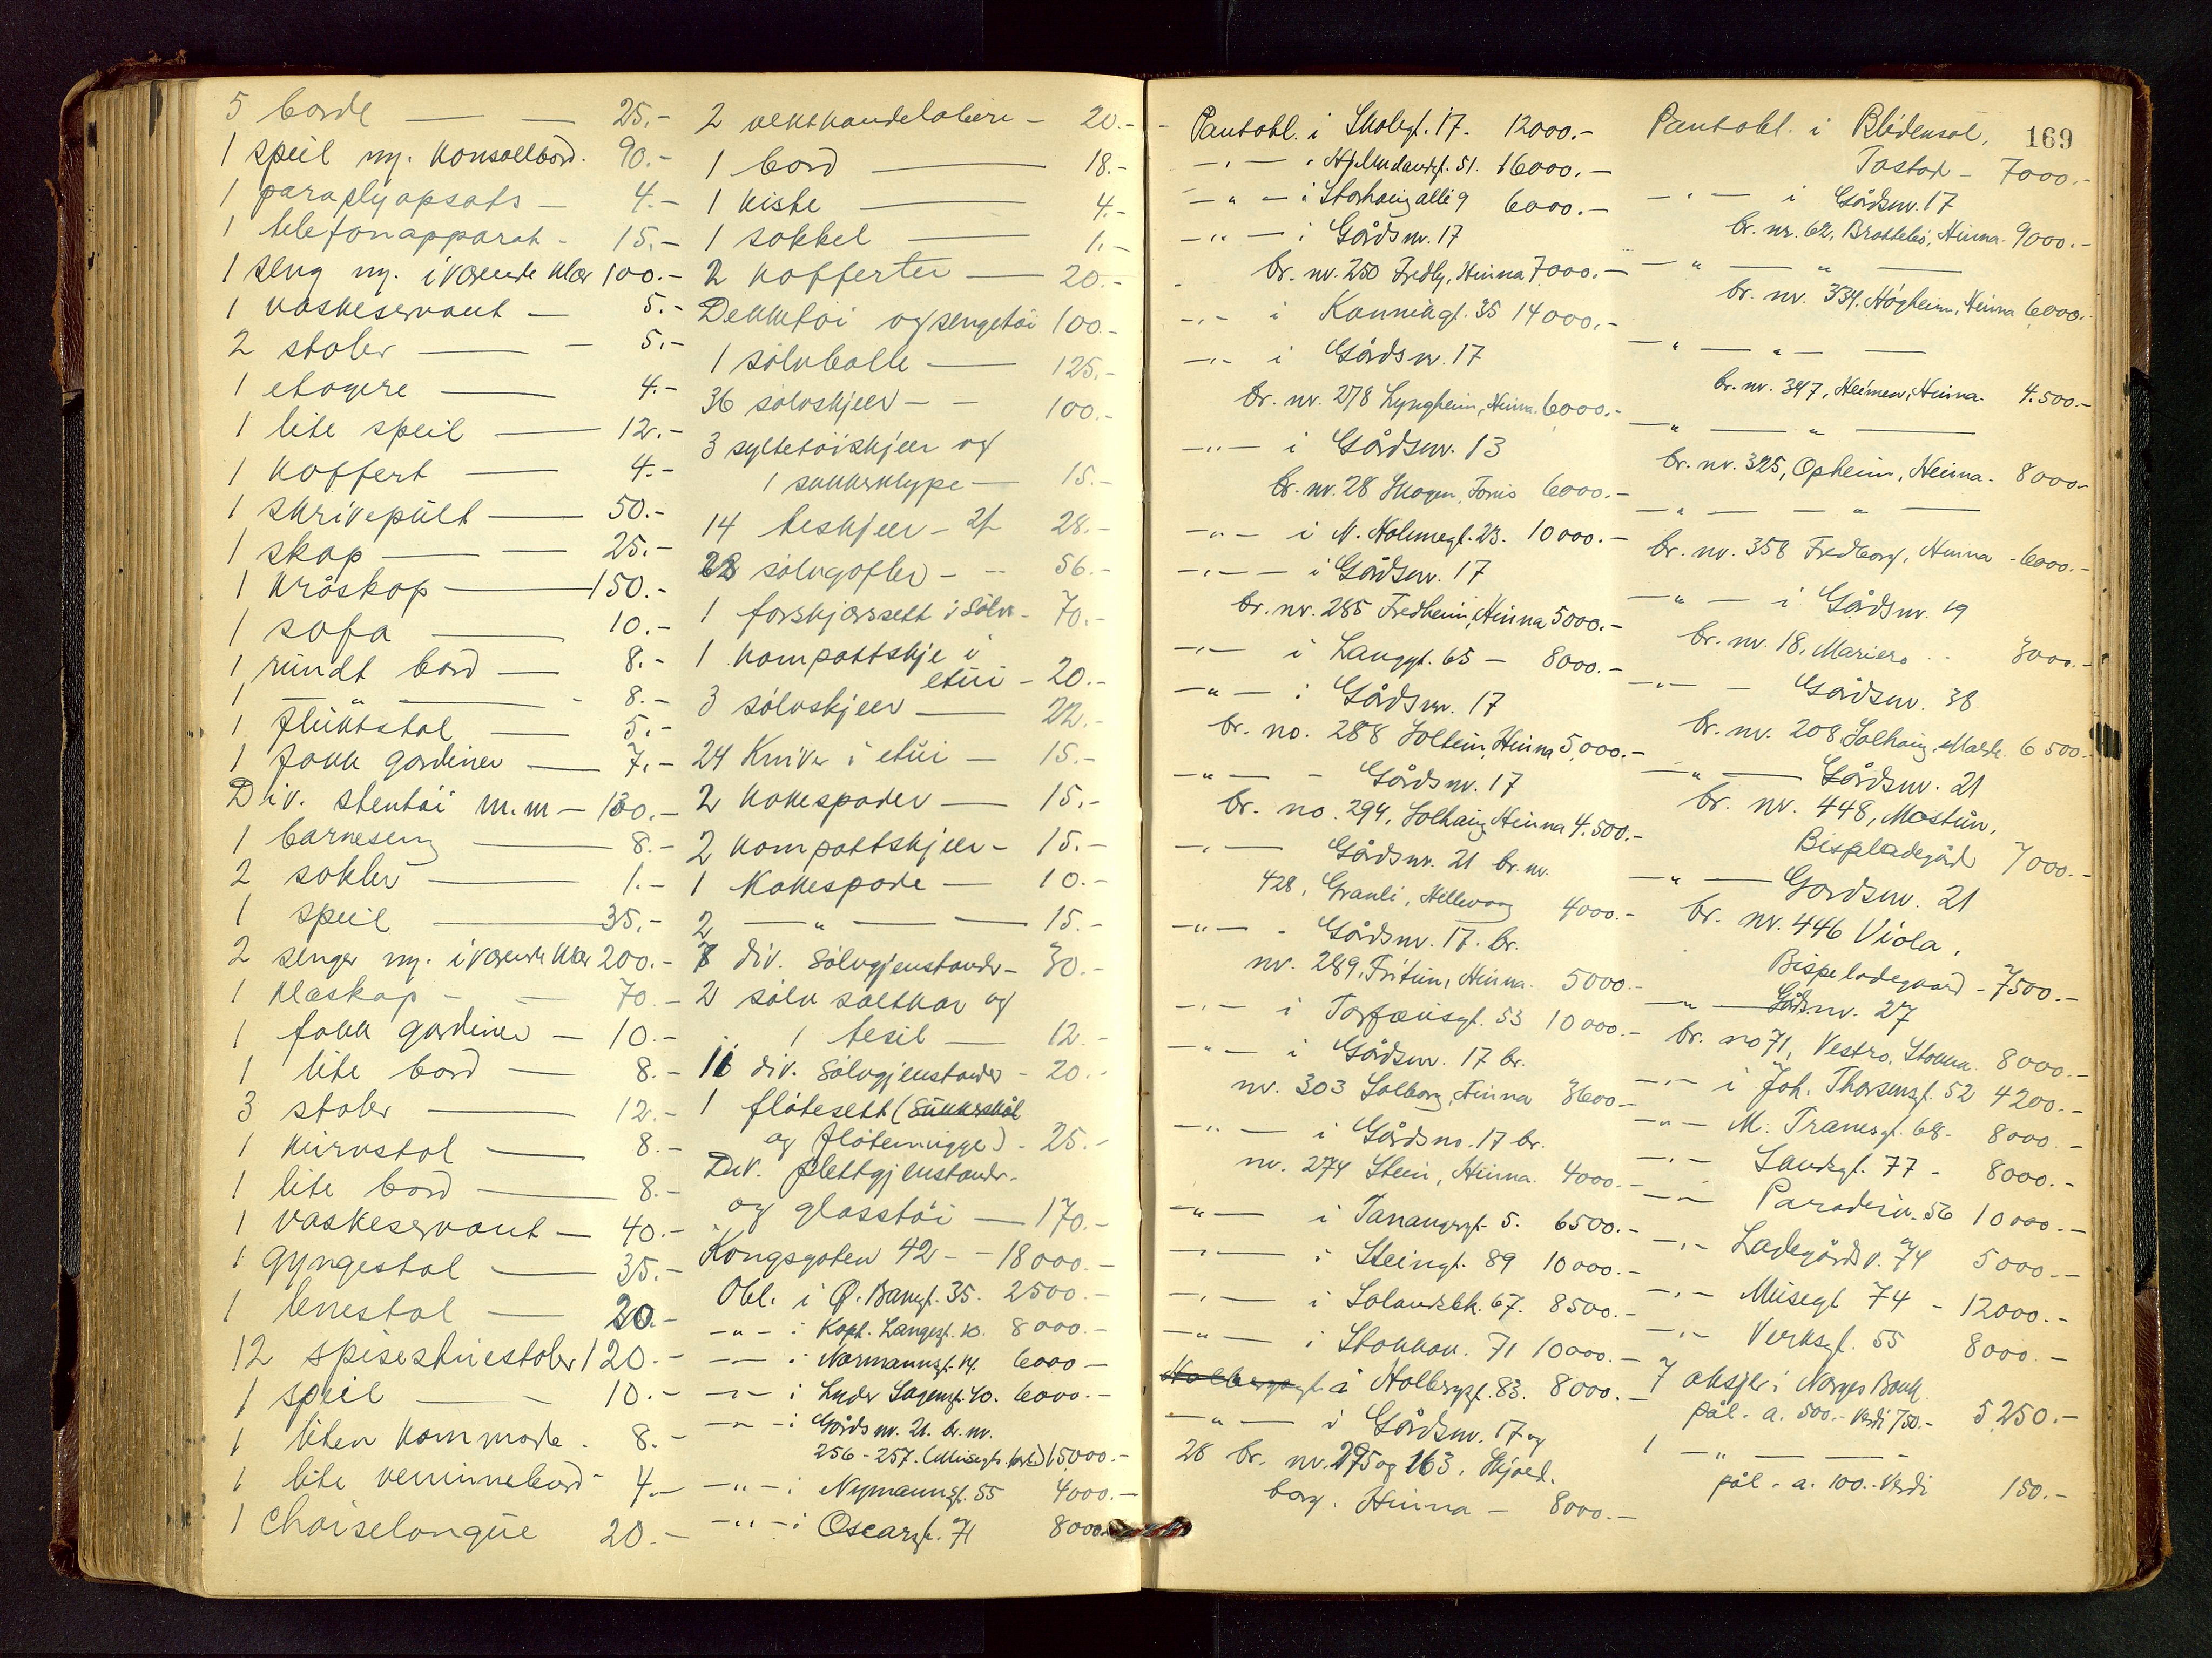 5 borde — — 25.-
1 speil m/. konsollbord. 90.-
1 paraplyopsats — 4.-
1 telefonapparat - 15.-
1 seng m/. iværende klær 100.-
1 vaskeservant — 5.-
2 stoler — - 5.-
1 etagere — 4.-
1 lite speil — 12.-
1 koffert — 4.-
1 skrivepült — 50.-
1 skap — — 25.-
1 kråskap — 150.-
1 sofa — 10.-
1 ründt bord — 8.-
1 — " — - 8.-
1 flüktstol — 5.-
1 fakk gardiner — 7.-
Div. stentøi m.m — 130.-
1 barneseng — 8.-
2 sokler — 1.-
1 speil — 35.-
2 senger m/. iværende klær 200.-
1 klæskap - — 70.-
1 fakk gardiner — 10.-
1 lite bord — 8.-
3 stoler — 12.-
1 kürvstol — 8.-
1 lite bord — 8.-
1 vaskeservant — 40.-
1 gyngestol — 35.-
1 lenestol — 20.-
12 spisestüestoler 120.-
1 speil — - 10.-
1 liten kommode. 8.-
1 lite venninnebord - 4.-
1 Chaiselongüe 20.-
2 vektkandelabere - 20.-
1 bord — 18.-
1 kiste — 4.-
1 sokkel — 1.-
2 kofferter — 20.-
Dekketøi og sengetøi 100.-
1 sølvbolle — 125.-
36 sølvskjeer - - 100.-
3 syltetøiskjeer og
1 sukkerklype — 15.-
14 teskjeer - 2/- 28.-
28 sølvgafler - - 56.-
1 forskjærsett i sølv - 70.-
1 kompottskje i
etüi - 20.-
3 sølvskjeer — 22.-
24 Kniver i etüi — 15.-
2 kakespader — 15.-
2 kompottskjeer - 15.-
1 Kakespade — 10.-
2 — " — — 15.-
7 div. sølvgjenstander - 30.-
2 sølv saltkar og
1 tesil — 12.-
11 div. Sølvgjenstander - 20.-
1 fløtesett (Sükkerskål
og fløtemügge) - 25.-
Div. plettgjenstander
og glasstøi — 170.-
Kongsgaten 42 - - 18000.-
Obl. i Ø. Bangt. 35. 2500.-
— " — i Kapt. Langesgt. 10. 8000.-
— — i Normannsgt. 14. 6000 —
— " — i Lyder Sagensgt. 40. 6000.-
— " — i Gårds nr. 21. br. nr.
256 - 257. 15000.-
— " — i Nymannsgt. 55 4000.-
— " — i Oscarsgt. 71 8000.-
Pantobl. i Skolegt. 17. 12000.-
— " — i Hjelmelandsgt. 51. 16000.-
— " — i Storhaug alle 9 6000.-
— " — i Gårdsnr. 17
br. nr. 250 Fredly, Hinna 7000.-
— " — i Kannikgt. 35 14000.-
— " — i Gårdsnr. 17
br. nr. 278 Lyngheim, Hinna. 6000.-
— " — i Gårdsnr. 13
br. nr. 28 Skogen, 6000.-
— " — i N. Holmegt. 23. 10000.-
— " — i Gårdsnr. 17
br. nr. 285 Fredheim, Hinna 5000.-
— " — i Langgt. 65 — 8000.-
— " — i Gårdsnr. 17
br. no. 288 Soltein, Hinna 5.000.-
— " — - Gårdsnr. 17
br. no. 294, Solhaug Hinna 4.500.-
— " — Gårdsnr. 21 br. nr.
428, Granli, Hillevaag 4000.-
— " — - Gårdsnr. 17. br.
nr. 289, Fritün, Hinna. 5000.-
— " — i Torfæusgt. 53 10000.-
— " — i Gårdsnr. 17 br.
nr. 303 Solborg, Hinna 3600 —
— " — i Gårdsno. 17 br.
nr. 274 Stein, Hinna. 4000.-
— " — i Tanangergt. 5. 6500.-
— " — i Steingt. 89 10000.-
— " — i Solandsbk. 67. 8500.-
— " — i Stokkav. 71 10000.-
Holbergsgt i Holbergsgt. 83. 8000.-
— " — i Gårdsnr. 17 og
28 br. nr. 295 og 163, Skjold-
borg, Hinna — 8000.-
169
Pantobl. i Blidensol,
Tastad - 7000.-
— " — i Gårdsnr. 17
br. nr. 62, Bratlebø, Hinna. 9000.-
— " — " —
br. nr. 334, Høgheim, Hinna 6000.-
— " — " — —
br. nr. 347, Heimen, Hinna. 4.500.-
— " — " —
br. nr. 325, Opheim, Hinna. 8000.-
— " — — " —
br. nr. 358 Fredborg, Hinna - 6000.-
— " — i Gårdsnr. 19
br. nr. 18, Mariero 3000.-
— " — - Gårdsnr. 38
br. nr. 208 Solhaug, 6500.-
— " — Gårdsnr. 21
br. nr. 448, Mostün,
Bispeladegård 7000.-
— " — Gårdsnr. 21
br. nr. 446 Viola,
Bispeladegaard - 7500.-
— " — Gårdsnr. 27
br. no 71, Vestro, Stokka. 8000.-
— " — i Joh. Thorsensgt. 52 4200.-
— " — M. Tranesgt. 68. 8000.-
— " — Sandsgt. 77 - 8000.-
— " — Paradisv. 56 10000.-
— " — Ladegårdsv. 74 5000.-
— " — Müsegt 74 - 12000.-
— " — Verksgt. 55 8000.-
7 aksjer i Norges Bank
pål. a. 500.- verdi 750.- 5.250.-
1 — " — —
pål. a. 100.- verdi 150.-